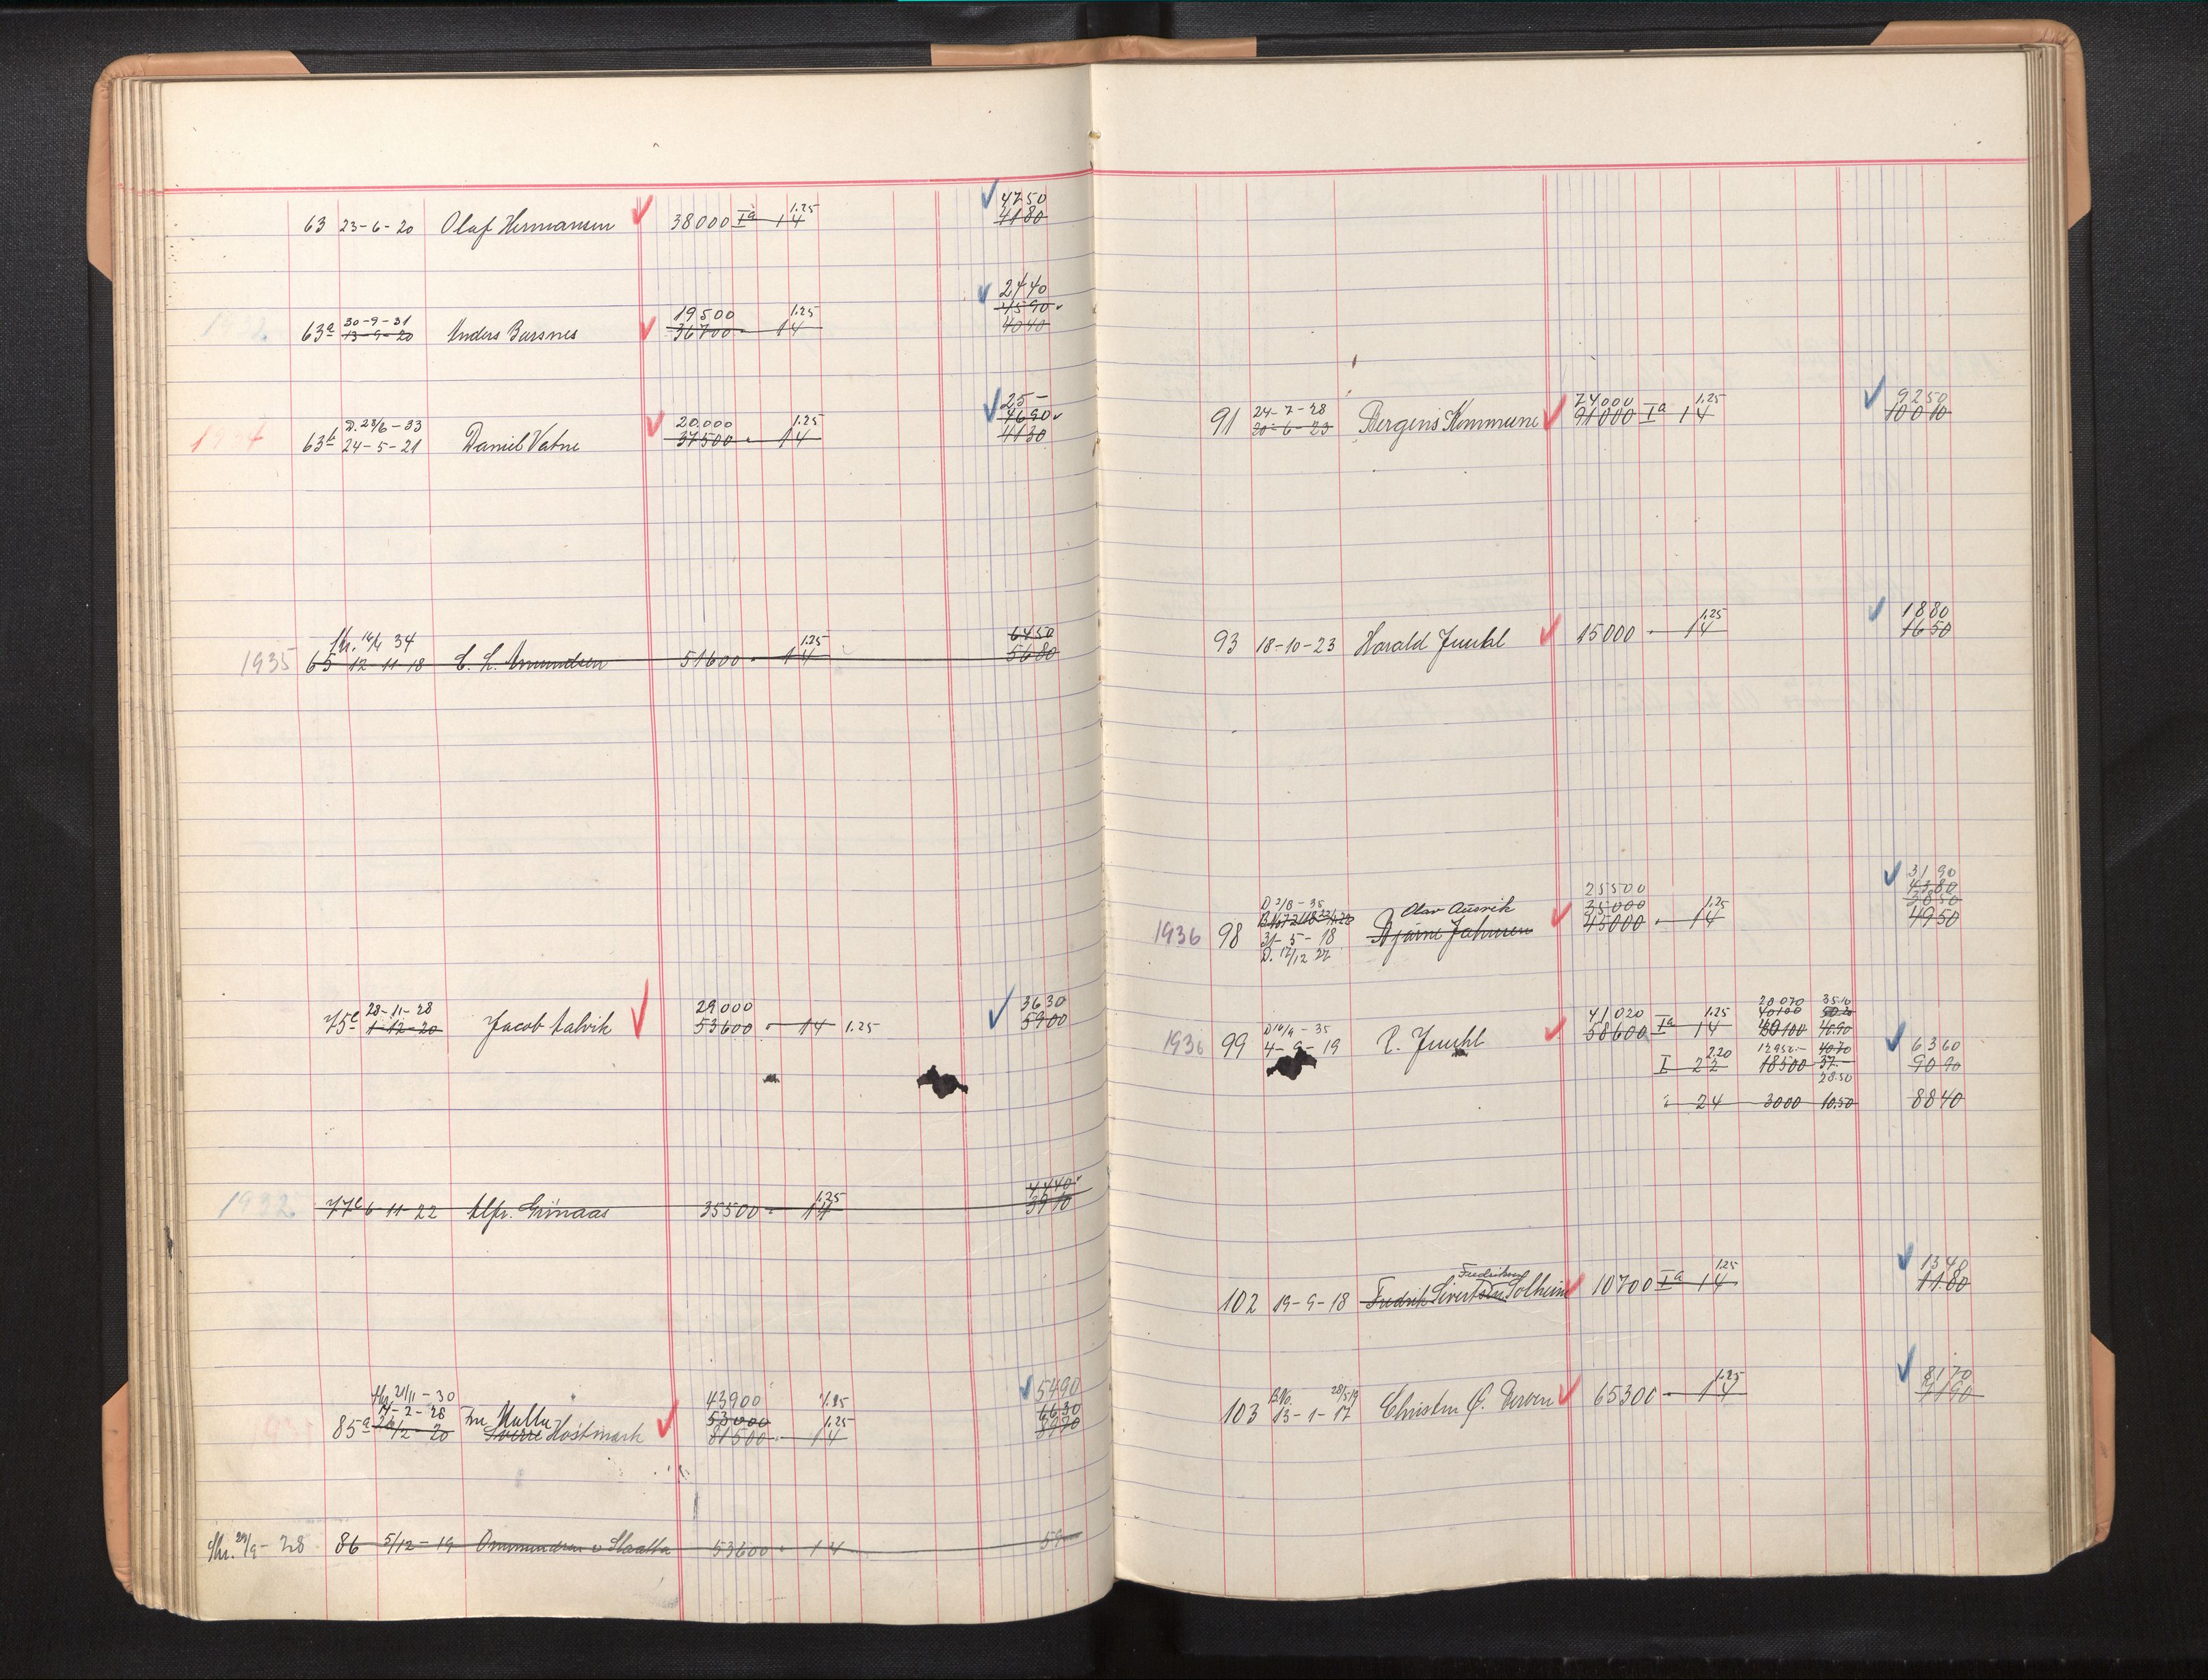 4750
63 23-6-20 Olaf Hermansen 38000 Ia 14 1.25 4180
2440
30-9-31 19500 1.25 4590
63a 13-9-20 Anders Barsnes 36700 " 14 4040
25-
D. 23/6-33 20.000 1.25 4690
1934 63b 24-5-21 Daniel Vatne 37500 " 14 4130
34 1.25 6450
1935 65 12-11-18 C. L. Amundsen 51600 " 14 5680
28-11-28 29000 3630
75c 1-12-20 Jacob Aalvik 53600 " 14 1.25 5900
1.25 4440
1932 77c 6-11-22 Alfr. Grimaas 35500 " 14 3910
21/11-30 43900 1.25 5490
-2-28 Fru 53000 1.25 6630
85a 2/12-20 Sverre Høstmark 81500 " 14 8970
29/9-28 86 5/12-19 Ommundsen 53600 " 14 59
24-7-28 74000 1.25 9250
91 30-6-23 Bergens Kommune 91000 Ia 14 10010
1.25 1880
93 18-10-23 Harald Juuhl 15000 " 14 1650
3190
25500 4380
D 2/8-35 Olav Ausvik 35000 1.25 3850
1936 98 31-5-18 Bjarne Jahnsen 45000 " 14 4950
D. 17/12 27
28070 35.10
D 16/4-35 41020 1.25 40100 50.20
1936 99 4-9-19 P. Juuhl 58600 Ia 14 40100 6360
2.20 12950.- 40.70
I 22 18500 37.- 9090
28.50
" 24 3000 10.50 8840
Fredriksen 1.25 1340
102 19-9-18 Fredrik Sivertsen Solheim 10700 Ia 14 1180
28/5-19 1.25 8170
103 13-1-17 Christen 65300 " 14 7190